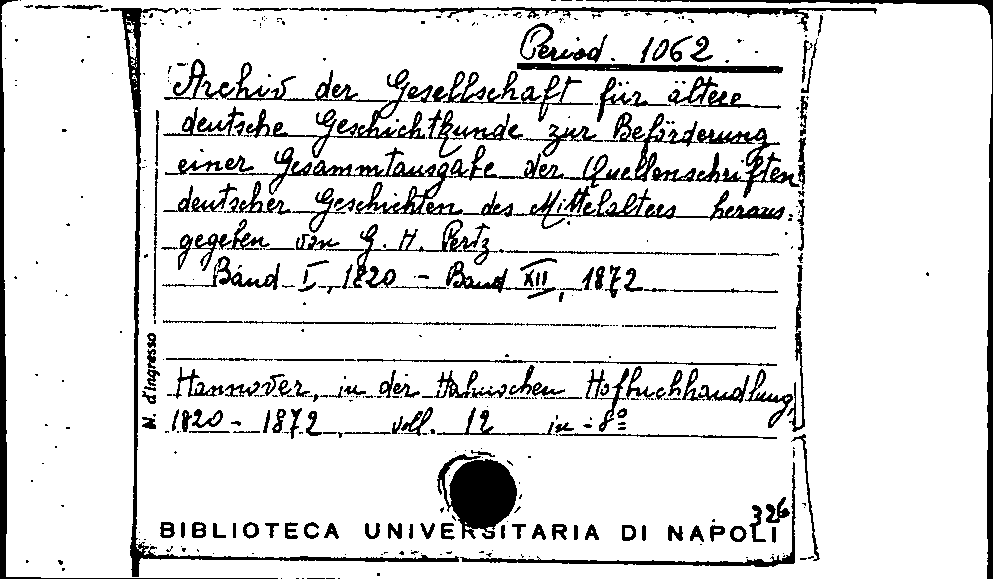 Period. 1062.
Archiv der Gesellschaft für ältere
deutsche Geschichtkunde zur Beförderung
einer Gesammtausgabe der Quellenschriften
deutscher Geschichten des Mittelalters heraus-
gegeben von G. H. Pertz.
Band I, 1820 - Band XII, 1872.
Hannover, in der Hahnschen Hofbuchhandlung,
1820 - 1872. voll. 12 in - 8º
N. d'ingresso
326
BIBLIOTECA UNIVERSITARIA DI NAPOLI